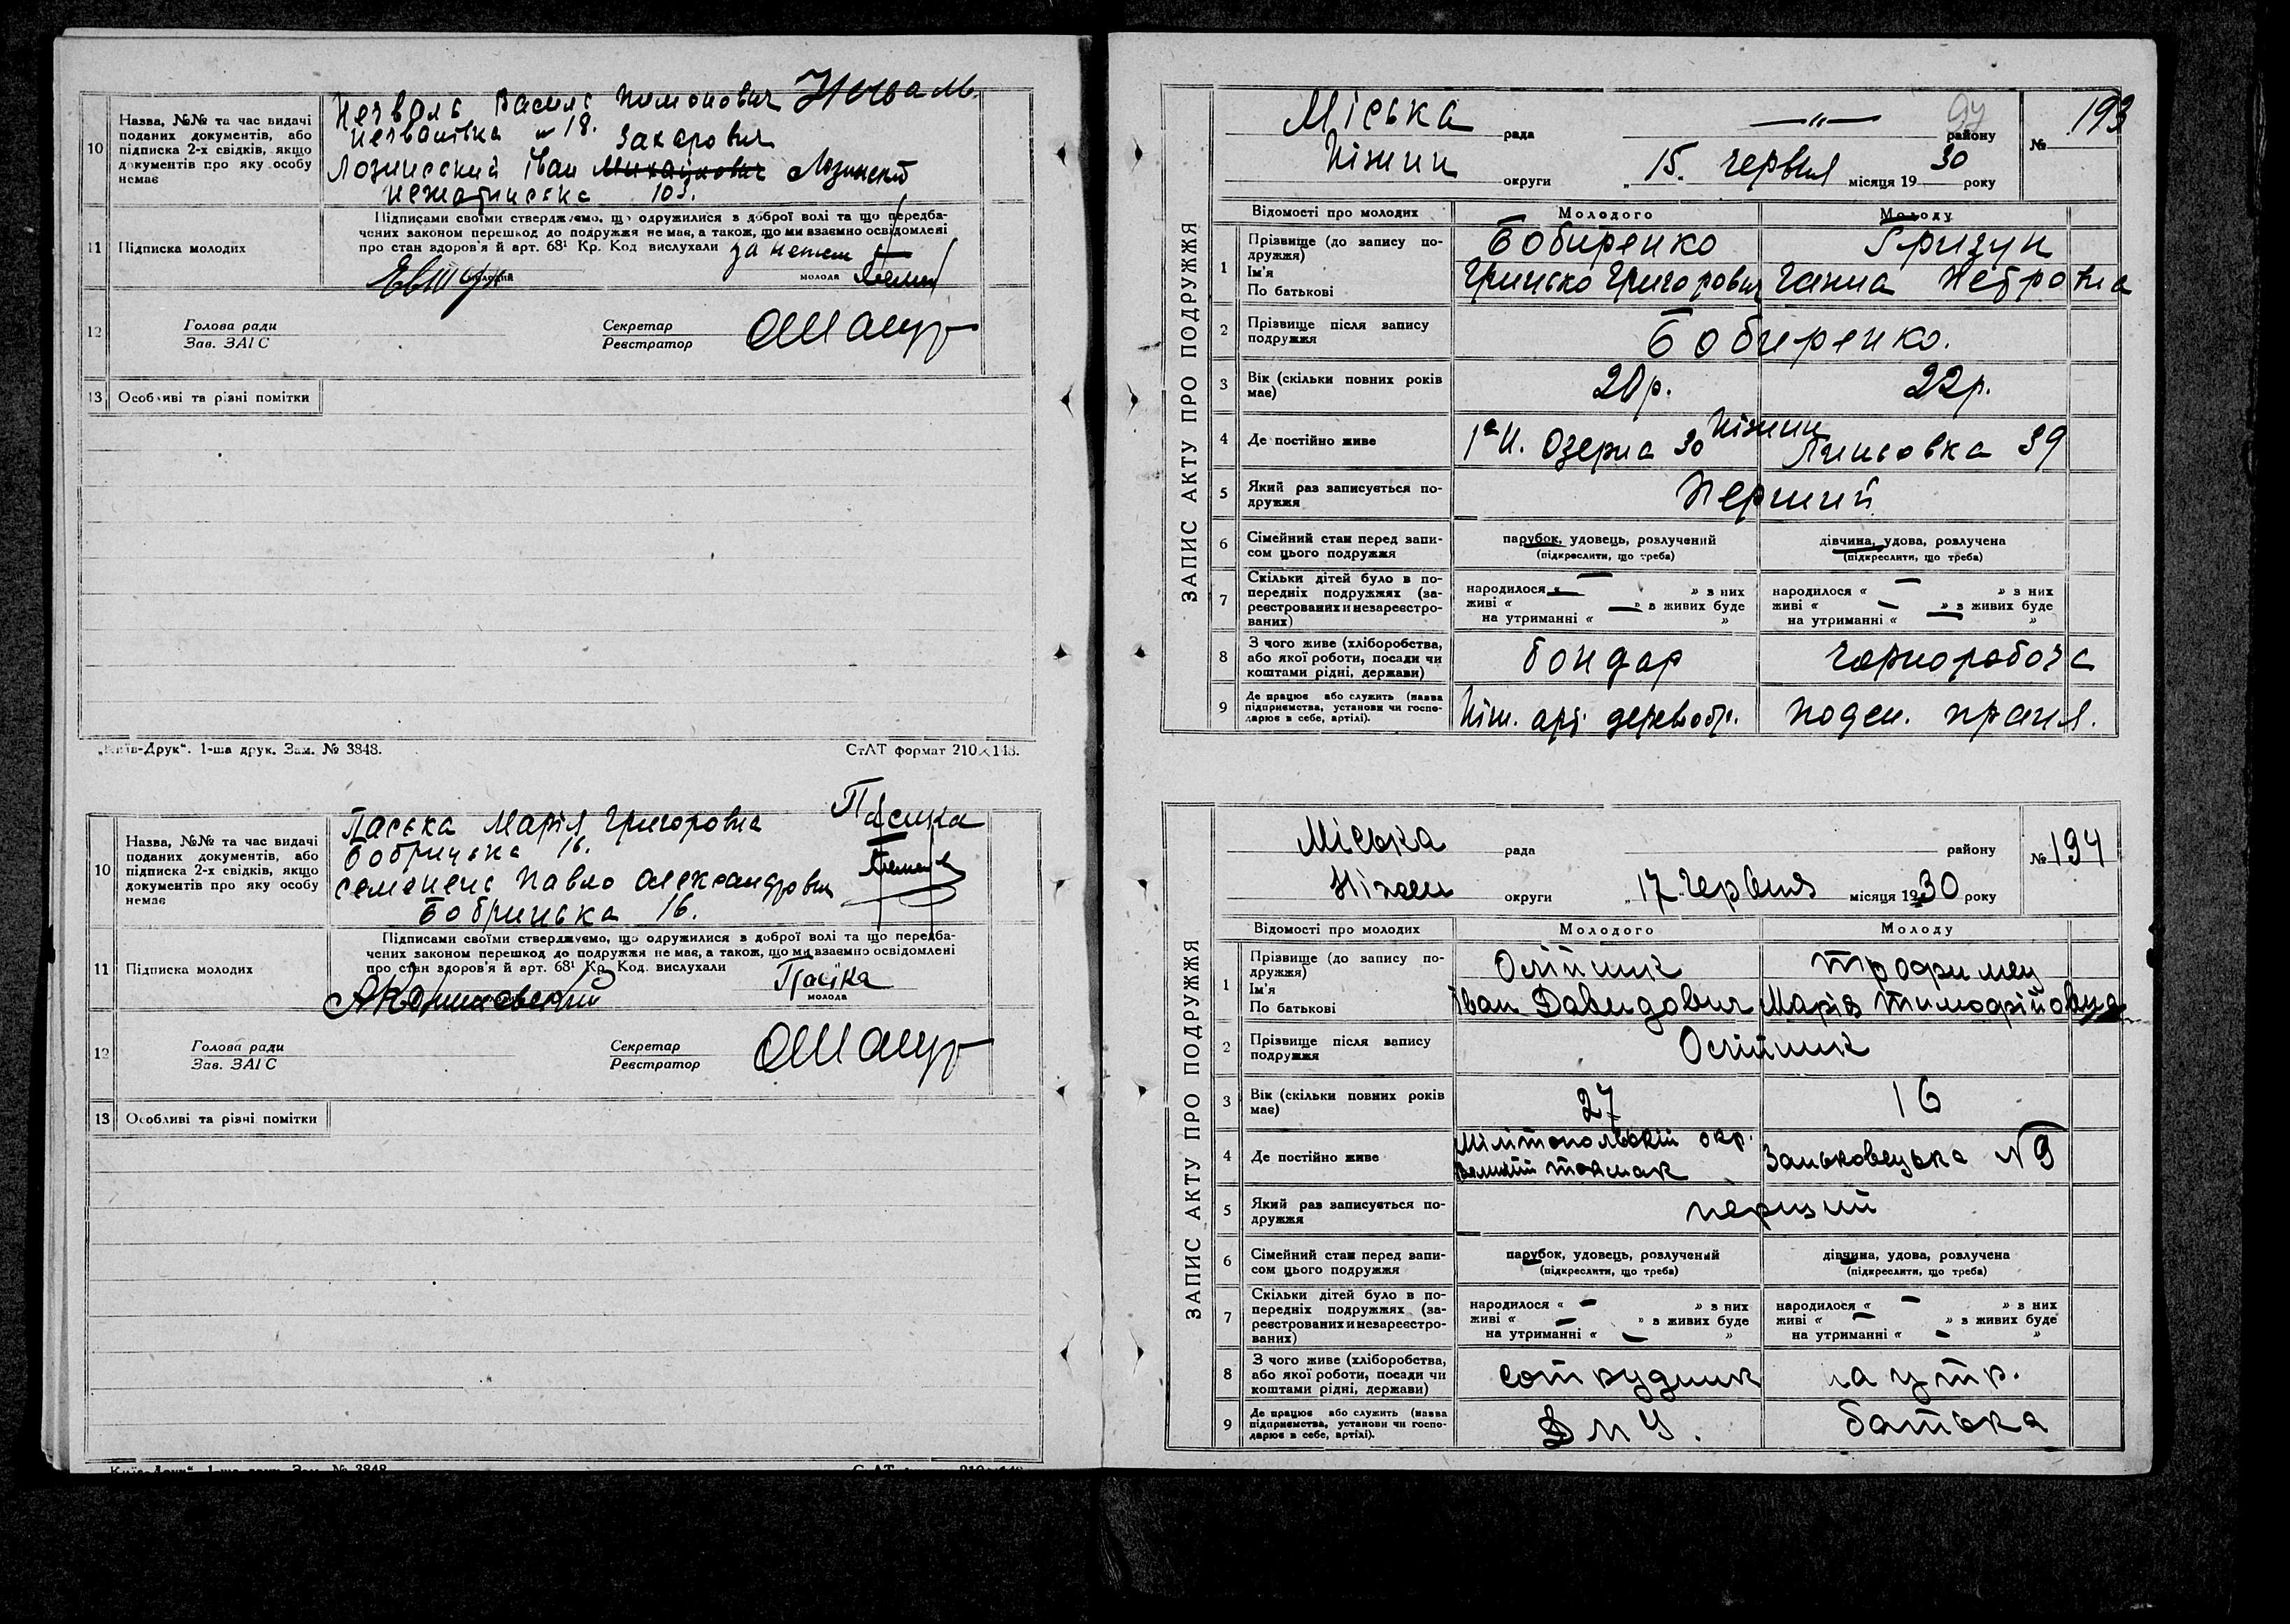 10
Назва, №№ та час видачі
поданих документів, або
підписка 2-х свідків, якщо
документів про яку особу
немає
Василь
Захарович
Іван Михайлович
103.
11
Підписка молодих
Підписами своїми стверджуємо, що одружилися в доброї волі та що передба-
чених законом перешкод до подружжя не має, а також, що ми взаємно освідомлені
про стан здоров'я й арт. 68¹ Кр. Код вислухали
молодий
молода
12
Голова ради
Зав. ЗАГС
Секретар
Реєстратор
13
Особливі та різні помітки
„Київ-Друк“. 1-ша друк. Зам. № 3848.
СтАТ формат 210×148.
10
Назва, №№ та час видачі
поданих документів, або
підписка 2-х свідків, якщо
документів про яку особу
немає
Пасіка Марія Григоровна
16.
Павло Олександрович
16.
11
Підписка молодих
Підписами своїми стверджуємо, що одружилися в доброї волі та що передба-
чених законом перешкод до подружжя не має, а також, що ми взаємно освідомлені
про стан здоров'я й арт. 68¹ Кр. Код. вислухали
Пасіка
молода
12
Голова ради
Зав. ЗАГС
Секретар
Реєстратор
13
Особливі та різні помітки
97
ЗАПИС АКТУ ПРО ПОДРУЖЖЯ
Міська рада —„— району
№ 193
Ніжин округи „15. червня місяця 1930 року
Відомості про молодих
Молодого
Молоду
1
Прізвище (до запису по-
дружжя)
Ім'я
По батькові
Бобиренко
Гринько Григорович
Гризун
Ганна Петровна
2
Прізвище після запису
подружжя
Бобиренко.
3
Вік (скільки повних років
має)
20р.
22р.
4
Де постійно живе
Ніжин
Озерна 30
39
5
Який раз записується по-
дружжя
Перший
6
Сімейний стан перед запи-
сом цього подружжя
парубок, удовець, розлучений
(підкреслити, що треба)
дівчина, удова, розлучена
(підкреслити, що треба)
7
Скільки дітей було в по-
передніх подружжях (за-
реєстрованих и незареєстро-
ваних)
народилося « — » з них
живі « — » в живих буде
на утриманні « »
народилося « — » з них
живі « — » в живих буде
на утриманні « — »
8
З чого живе (хліборобства,
або якої роботи, посади чи
коштами рідні, держави)
бондар
чорноробоча
9
Де працює або служить (назва
підприємства, установи чи госпо-
дарює в себе, артілі).
Ніж. арт. деревообр.
поден. праця.
ЗАПИС АКТУ ПРО ПОДРУЖЖЯ
Міська рада району
№ 194
Ніжин округи „17 червня місяця 1930 року
Відомості про молодих
Молодого
Молоду
1
Прізвище (до запису по-
дружжя)
Ім'я
По батькові
Олійник
Іван Давидович
Трофимец
Марія Тимофійовна
2
Прізвище після запису
подружжя
Олійник
3
Вік (скільки повних років
має)
27
16
4
Де постійно живе
Мілітопольській окр.
Великий Токмак
Заньковецька №9
5
Який раз записується по-
дружжя
перший
6
Сімейний стан перед запи-
сом цього подружжя
парубок, удовець, розлучений
(підкреслити, що треба)
дівчина, удова, розлучена
(підкреслити, що треба)
7
Скільки дітей було в по-
передніх подружжях (за-
реєстрованих и незареєстро-
ваних)
народилося « — » з них
живі « — » в живих буде
на утриманні « — »
народилося « — » з них
живі « — » в живих буде
на утриманні « — »
8
З чого живе (хліборобства,
або якої роботи, посади чи
коштами рідні, держави)
сотрудник
на утр.
9
Де працює або служить (назва
підприємства, установи чи госпо-
дарює в себе, артілі).
батька